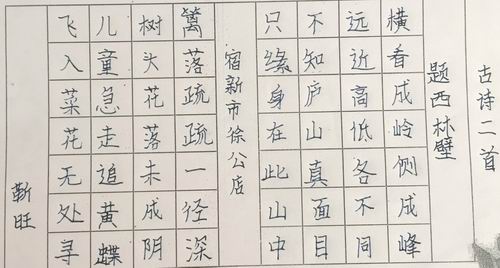 古诗二首
题西林壁
横看成岭侧成峰
远近高低各不同
不知庐山真面目
只缘身在此山中
宿新市徐公店
篱落疏疏一径深
树头花落未成阴
儿童急走追黄蝶
飞入菜花无处寻
靳旺